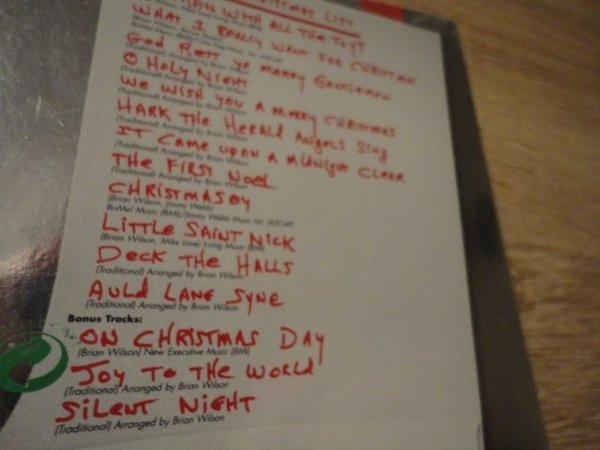 CHRISTMAS LIST
MAN WITH ALL THE TOYS
WHAT I REALLY WANT FOR CHRISTMAS
God Rest ye Merry Gentlemen
(Traditional) Arranged by Brian Wilson
O HOLY NIGHT
(Traditional) Arranged by Brian Wilson
WE WISH YOU A MERRY CHRISTMAS
(Traditional) Arranged by Brian Wilson
HARK THE HERALD ANGELS SING
(Traditional) Arranged by Brian Wilson
IT CAME UPON A MIDNIGHT CLEAR
(Traditional) Arranged by Brian Wilson
THE FIRST NOEL
(Traditional) Arranged by Brian Wilson
CHRISTMASEY
(Brian Wilson, Jimmy Webb)
BriMel Music (BMI)/Jimmy Webb Music Ltd (ASCAP)
LITTLE SAINT NICK
(Brian Wilson, Mike Love) Irving Music (BMI)
DECK THE HALLS
(Traditional) Arranged by Brian Wilson
AULD LANG SYNE
(Traditional) Arranged by Brian Wilson
Bonus Tracks:
ON CHRISTMAS DAY
(Brian Wilson) New Executive Music (BMI)
JOY TO THE WORLD
(Traditional) Arranged by Brian Wilson
SILENT NIGHT
(Traditional) Arranged by Brian Wilson